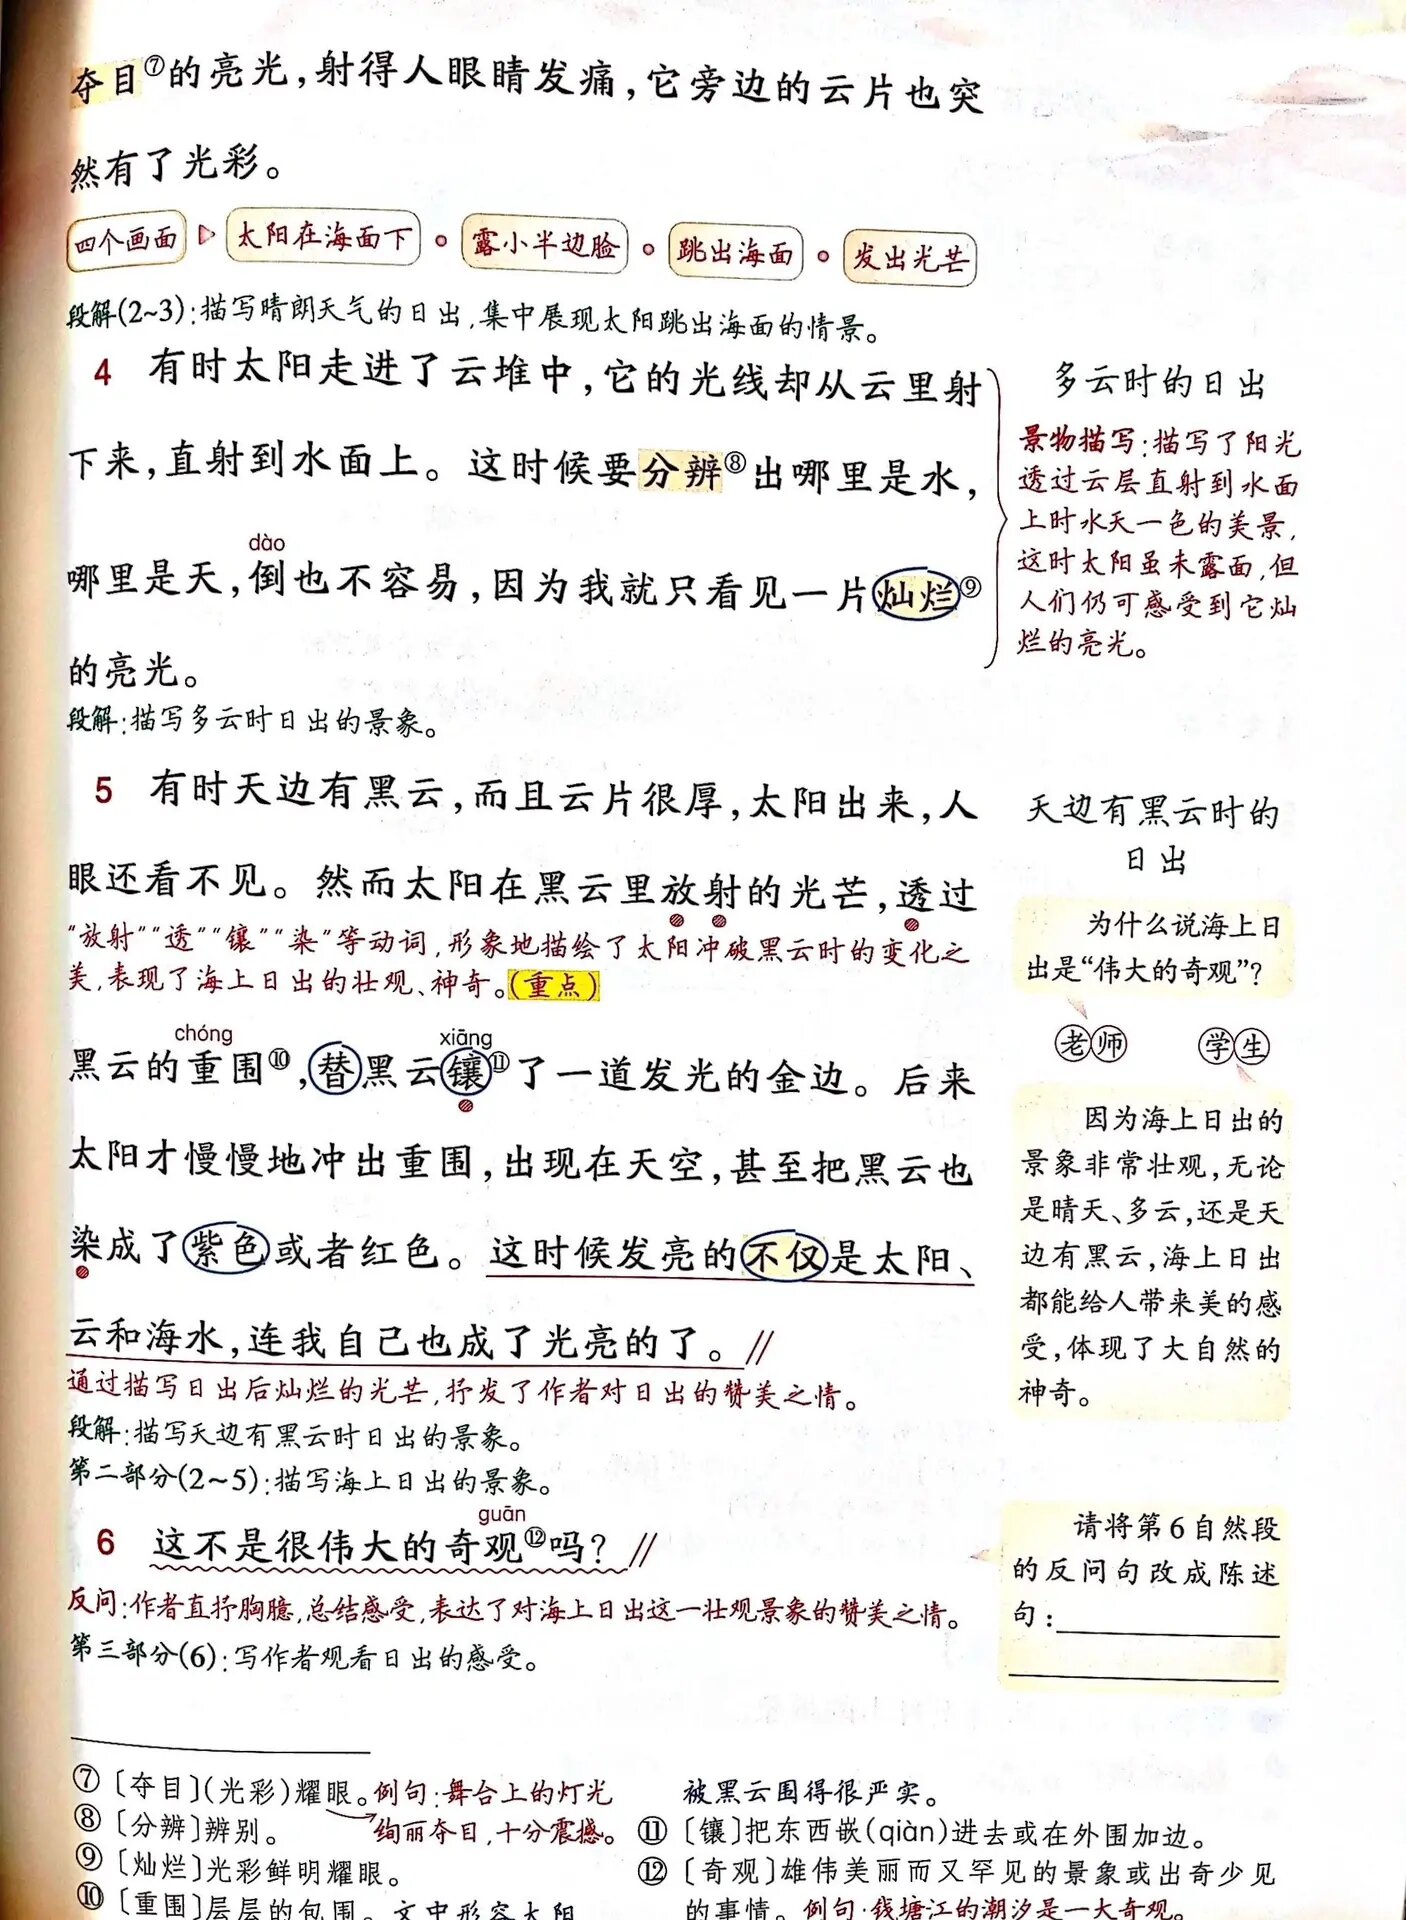 夺目⑦的亮光，射得人眼睛发痛，它旁边的云片也突
然有了光彩。
四个画面 太阳在海面下 • 露小半边脸 • 跳出海面 • 发出光芒
段解(2~3)：描写晴朗天气的日出，集中展现太阳跳出海面的情景。
4 有时太阳走进了云堆中，它的光线却从云里射
下来，直射到水面上。这时候要分辨⑧出哪里是水，
dào
哪里是天，倒也不容易，因为我就只看见一片灿烂⑨
的亮光。
段解：描写多云时日出的景象。
多云时的日出
景物描写：描写了阳光
透过云层直射到水面
上时水天一色的美景，
这时太阳虽未露面，但
人们仍可感受到它灿
烂的亮光。
5 有时天边有黑云，而且云片很厚，太阳出来，人
眼还看不见。然而太阳在黑云里放射的光芒，透过
“放射”“透”“镶”“染”等动词，形象地描绘了太阳冲破黑云时的变化之
美，表现了海上日出的壮观、神奇。(重点)
chóng xiāng
黑云的重围⑩，替黑云镶⑪了一道发光的金边。后来
太阳才慢慢地冲出重围，出现在天空，甚至把黑云也
染成了紫色或者红色。这时候发亮的不仅是太阳、
云和海水，连我自己也成了光亮的了。//
通过描写日出后灿烂的光芒，抒发了作者对日出的赞美之情。
段解：描写天边有黑云时日出的景象。
第二部分(2~5)：描写海上日出的景象。
天边有黑云时的
日出
为什么说海上日
出是“伟大的奇观”？
老师 学生
因为海上日出的
景象非常壮观，无论
是晴天、多云，还是天
边有黑云，海上日出
都能给人带来美的感
受，体现了大自然的
神奇。
guān
6 这不是很伟大的奇观⑫吗？//
反问：作者直抒胸臆，总结感受，表达了对海上日出这一壮观景象的赞美之情。
第三部分(6)：写作者观看日出的感受。
请将第6自然段
的反问句改成陈述
句：
⑦〔夺目〕(光彩)耀眼。例句：舞台上的灯光
绚丽夺目，十分震撼。
⑧〔分辨〕辨别。
⑨〔灿烂〕光彩鲜明耀眼。
⑩〔重围〕层层的包围。文中形容太阳
被黑云围得很严实。
⑪〔镶〕把东西嵌(qiàn)进去或在外围加边。
⑫〔奇观〕雄伟美丽而又罕见的景象或出奇少见
的事情。例句：钱塘江的潮汐是一大奇观。